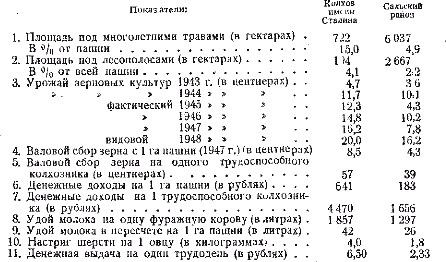 Показатели: Колхоз имени Сталина Сальский район
1. Площадь под многолетними травами (в гектарах) . 722 6 037
В % от пашни . . . . . . . . . 15,0 4,9
2. Площадь под лесополосами (в гектарах) . . . 2 667
В % от всей пашни . . . . . . . 4,1 2,2
3. Урожай зерновых культур 1943 г. (в центнерах) . . 4,7 3 6
» » » 1944 » » » 11,7 10,1
фактический 1945 » » » 12,3 4,3
» 1946 » » » 14,8 10,2
» 1947 » » » 16,2 7,8
видовой 1948 » » » 20,0 16,2
4. Валовой сбор зерна с 1 га пашни (1947 г.) (в центнерах) 8,5 4,3
5. Валовой сбор зерна на одного трудоспособного
колхозника (в центнерах) . . . . . . . 57 39
6. Денежные доходы на 1 га пашни (в рублях) . . . . 641 183
7. Денежные доходы на 1 трудоспособного колхозни-
ка (в рублях) . . . . . . . . . 4 470 1 656
8. Удой молока на одну фуражную корову (в литрах) . 1 857 1 297
9. Удой молока в пересчете на 1 га пашни (в литрах) . 42 26
10. Настриг шерсти на 1 овцу (в килограммах) . . . . 4,0 1,8
11. Денежная выдача на один трудодень (в рублях) . . 6,50 2,33